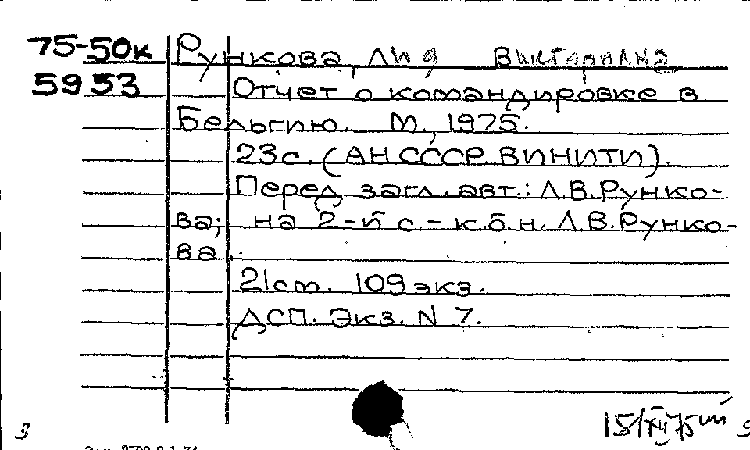 75-50к Рункова, Лид Викторовна
5953 Отчет о командировке в
Бельгию. М., 1975.
23с. (АН СССР. ВИНИТИ).
Перед загл. авт.: Л.В. Рунко-
ва; на 2-й с - к.б.н. Л.В. Рунко-
ва
21ст. 109 экз.
ДСП. Экз. N 7.
15/XII 75
3